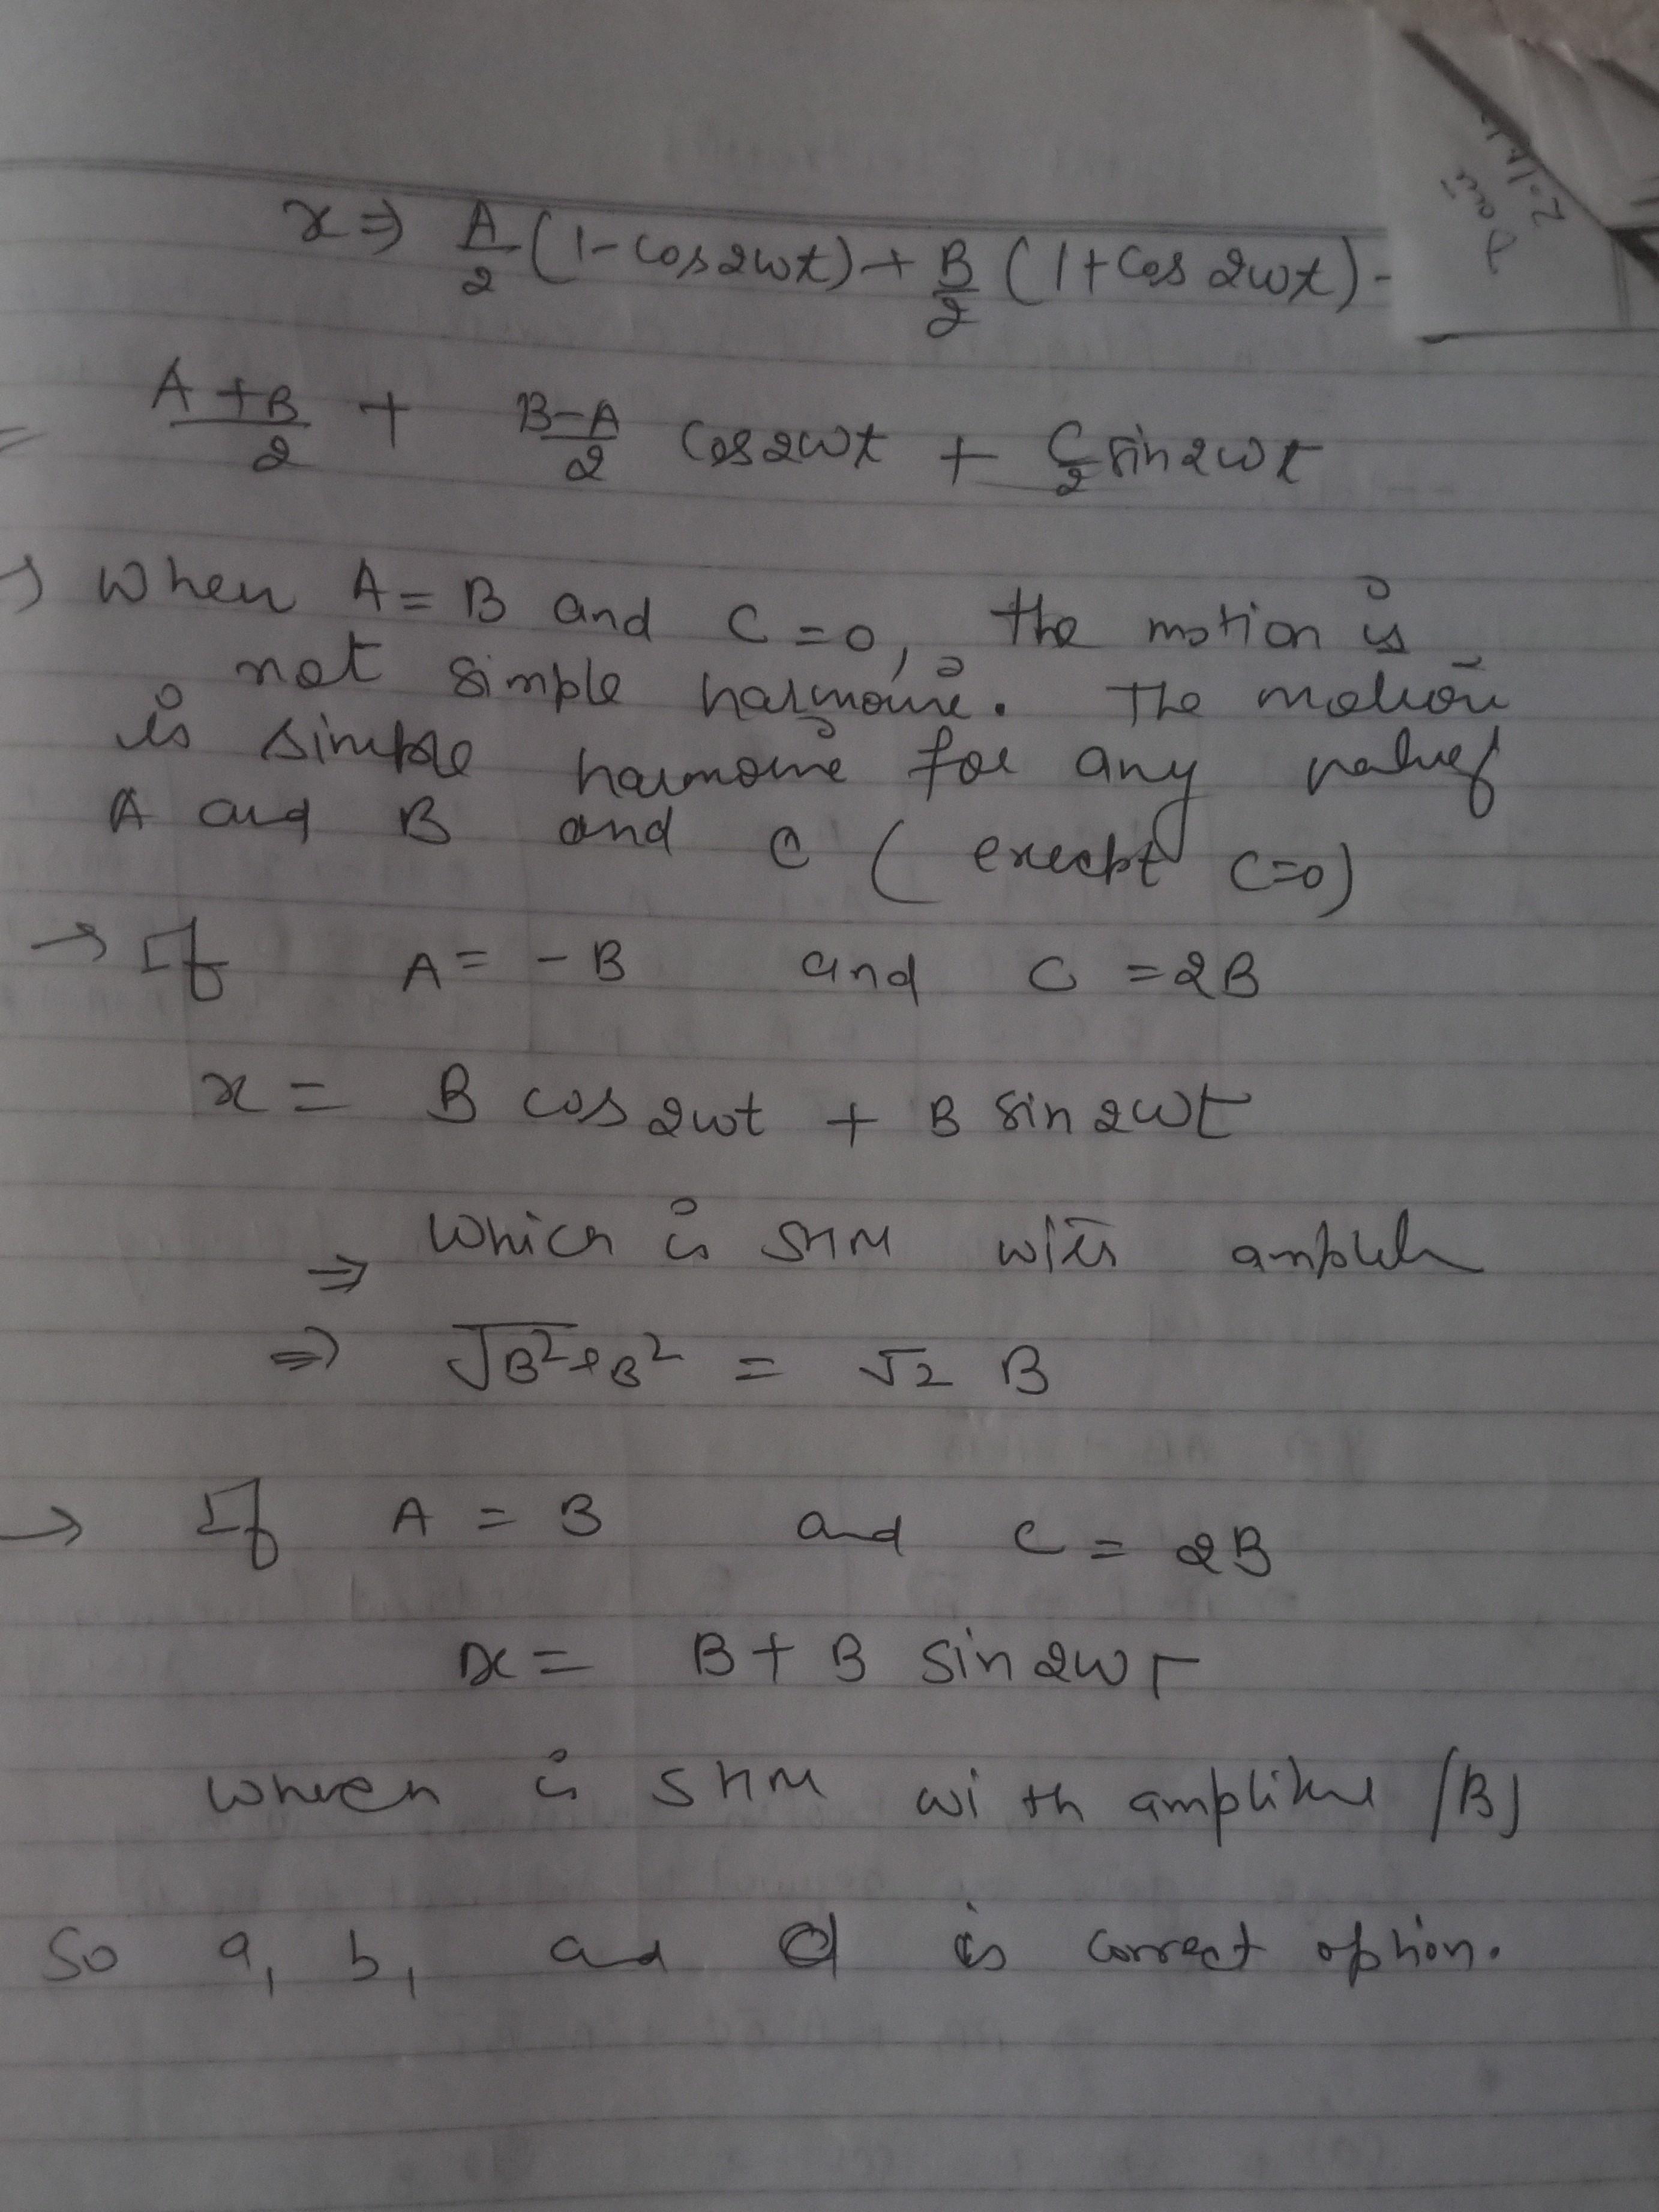 x ⇒ A/2 (1-cos2wt) + B/2 (1+cos 2wt) -
A+B/2 + B-A/2 cos2wt + C/2 sin2wt
→ When A = B and C = 0, the motion is
not simple harmonic. The motion
is simple harmonic for any value of
A and B and C (except C=0)
→ If A = -B and C = 2B
x = B cos 2wt + B sin 2wt
⇒ which is SHM with
⇒ √B²+B² = √2 B
→ If A = B and C = 2B
x = B + B sin 2wt
which is SHM with amplitude |B|
So a, b, and d is correct option.